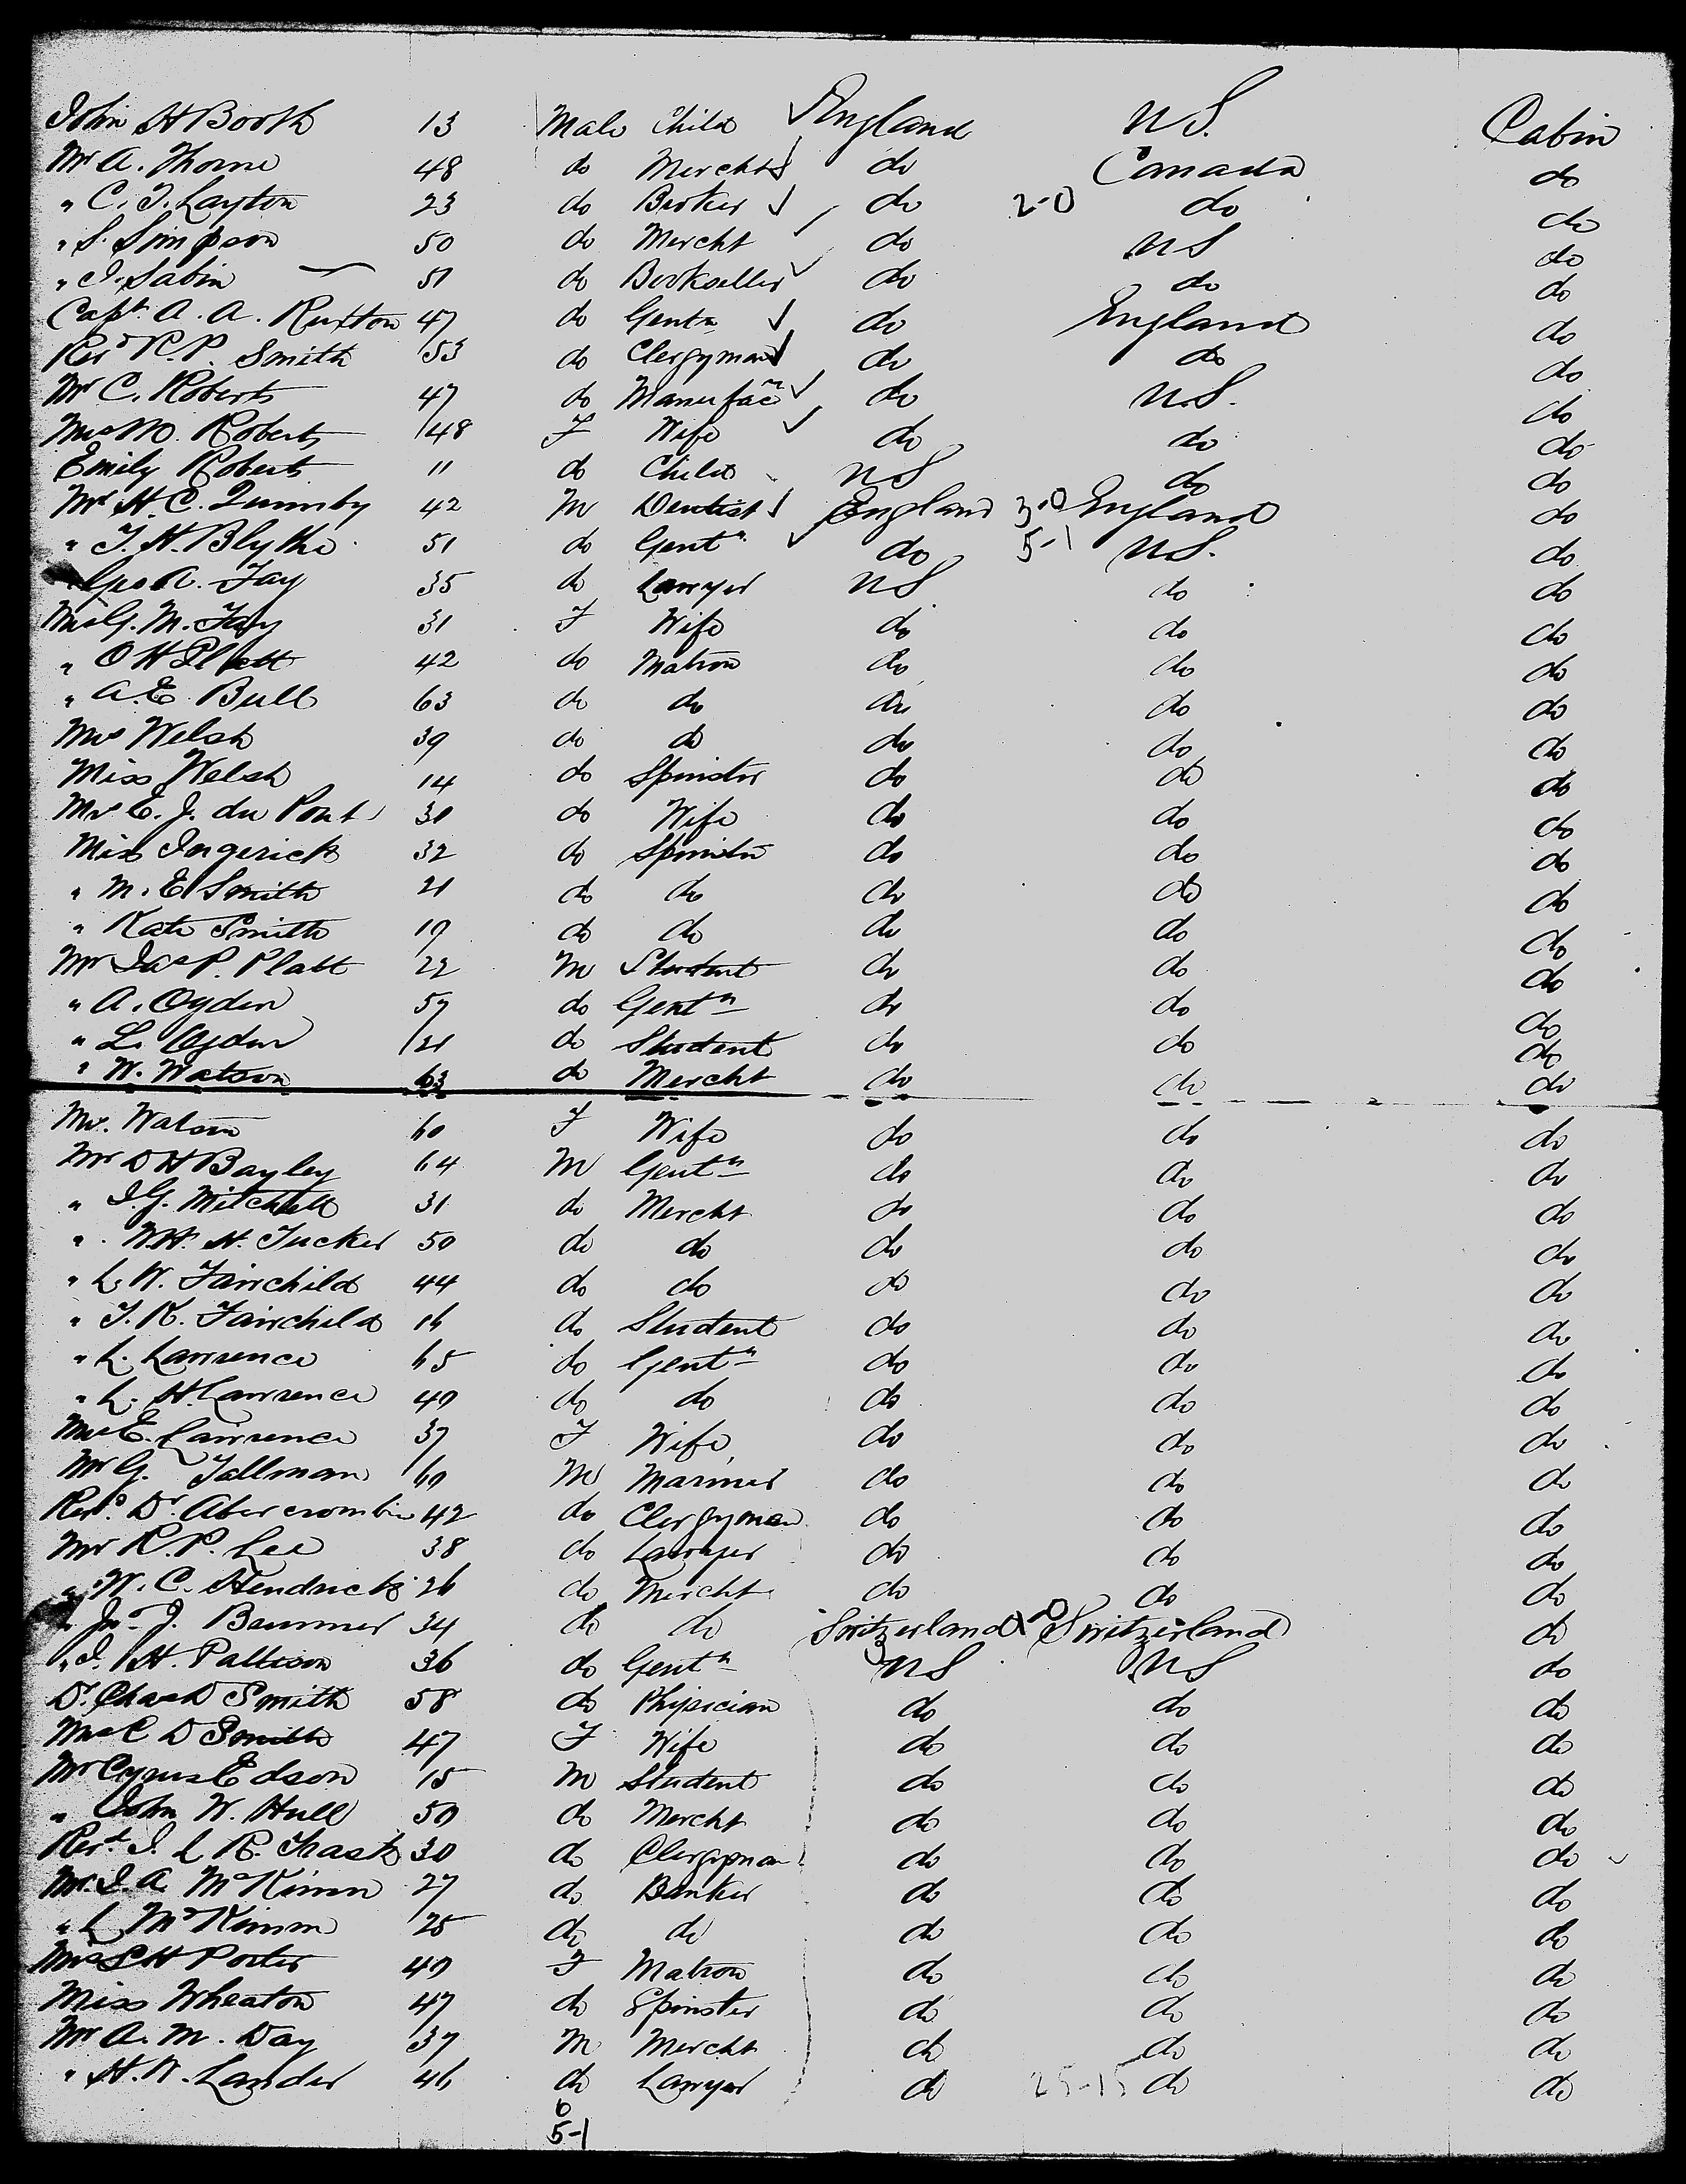 John H Booth 13 Male Child England U.S. Cabin
Mr A. Thorne 48 do Mercht do Canada do
" C. J. Layton 23 do Broker do 2-0 do do
" S. Simpson 50 do Mercht do US do
" J. Sabin 51 do Bookseller do do do
Capt. A. A. Ruxton 47 do Gentn do England do
Revd R. P. Smith 53 do Clergyman do do do
Mr C. Roberts 47 do Manufacr do U.S. do
Mrs M. Roberts 48 F Wife do do do
Emily Roberts 11 do Child US do do
Mr H. C. Quimby 42 M Dentist England 3-0 England do
" T. H. Blythe 51 do Gentn do 5-1 U.S. do
" Geo A. Fay 35 do Lawyer US do do
Mrs G. M. Fay 31 F Wife do do do
" O H Platt 42 do Matron do do do
" A. E. Bull 63 do do do do do
Mrs Welsh 39 do do do do do
Miss Welsh 14 do Spinster do do do
Mrs E. J. du Pont 30 do Wife do do do
Miss Ingerick 32 do Spinster do do do
" M. E Smith 21 do do do do do
" Kate Smith 19 do do do do do
Mr Jas P. Platt 22 M Student do do do
" A. Ogden 57 do Gentn do do do
" L. Ogden 21 do Student do do do
" W. Watson 63 do Mercht do do do
Mrs. Watson 60 F Wife do do do
Mr D H Bayley 64 M Gentn do do do
" J. G. Mitchell 31 do Mercht do do do
" W. H. H. Tucker 50 do do do do do
" L. W. Fairchild 44 do do do do do
" T. R. Fairchild 16 do Student do do do
" L. Lawrence 65 do Gentn do do do
" L. H. Lawrence 49 do do do do do
Mrs E. Lawrence 37 F Wife do do do
Mr G. Tallman 60 M Mariner do do do
Revd Dr Abercrombie 42 do Clergyman do do do
Mr R. P. Lee 38 do Lawyer do do do
" W. C. Hendricks 26 do Mercht do do do
" Jno. J. Brunner 34 do do Switzerland Switzerland do
" J. H. Pattison 36 do Gentn US US do
Dr. Chas D Smith 58 do Phipsician do do do
Mrs C D Smith 47 F Wife do do do
Mr Cyrus Edson 15 M Student do do do
" John W. Hull 50 do Mercht do do do
Revd J. L R. Trask 30 do Clergyman do do do
Mr. J. A. McKimm 27 do Banker do do do
" L McKimm 25 do do do do do
Mrs S H Porter 49 F Matron do do do
Miss Wheaton 47 do Spinster do do do
Mr A. M. Day 37 M Mercht do do do
" H. W. Lander 46 do Lawyer do 25-15 do do
6
5-1